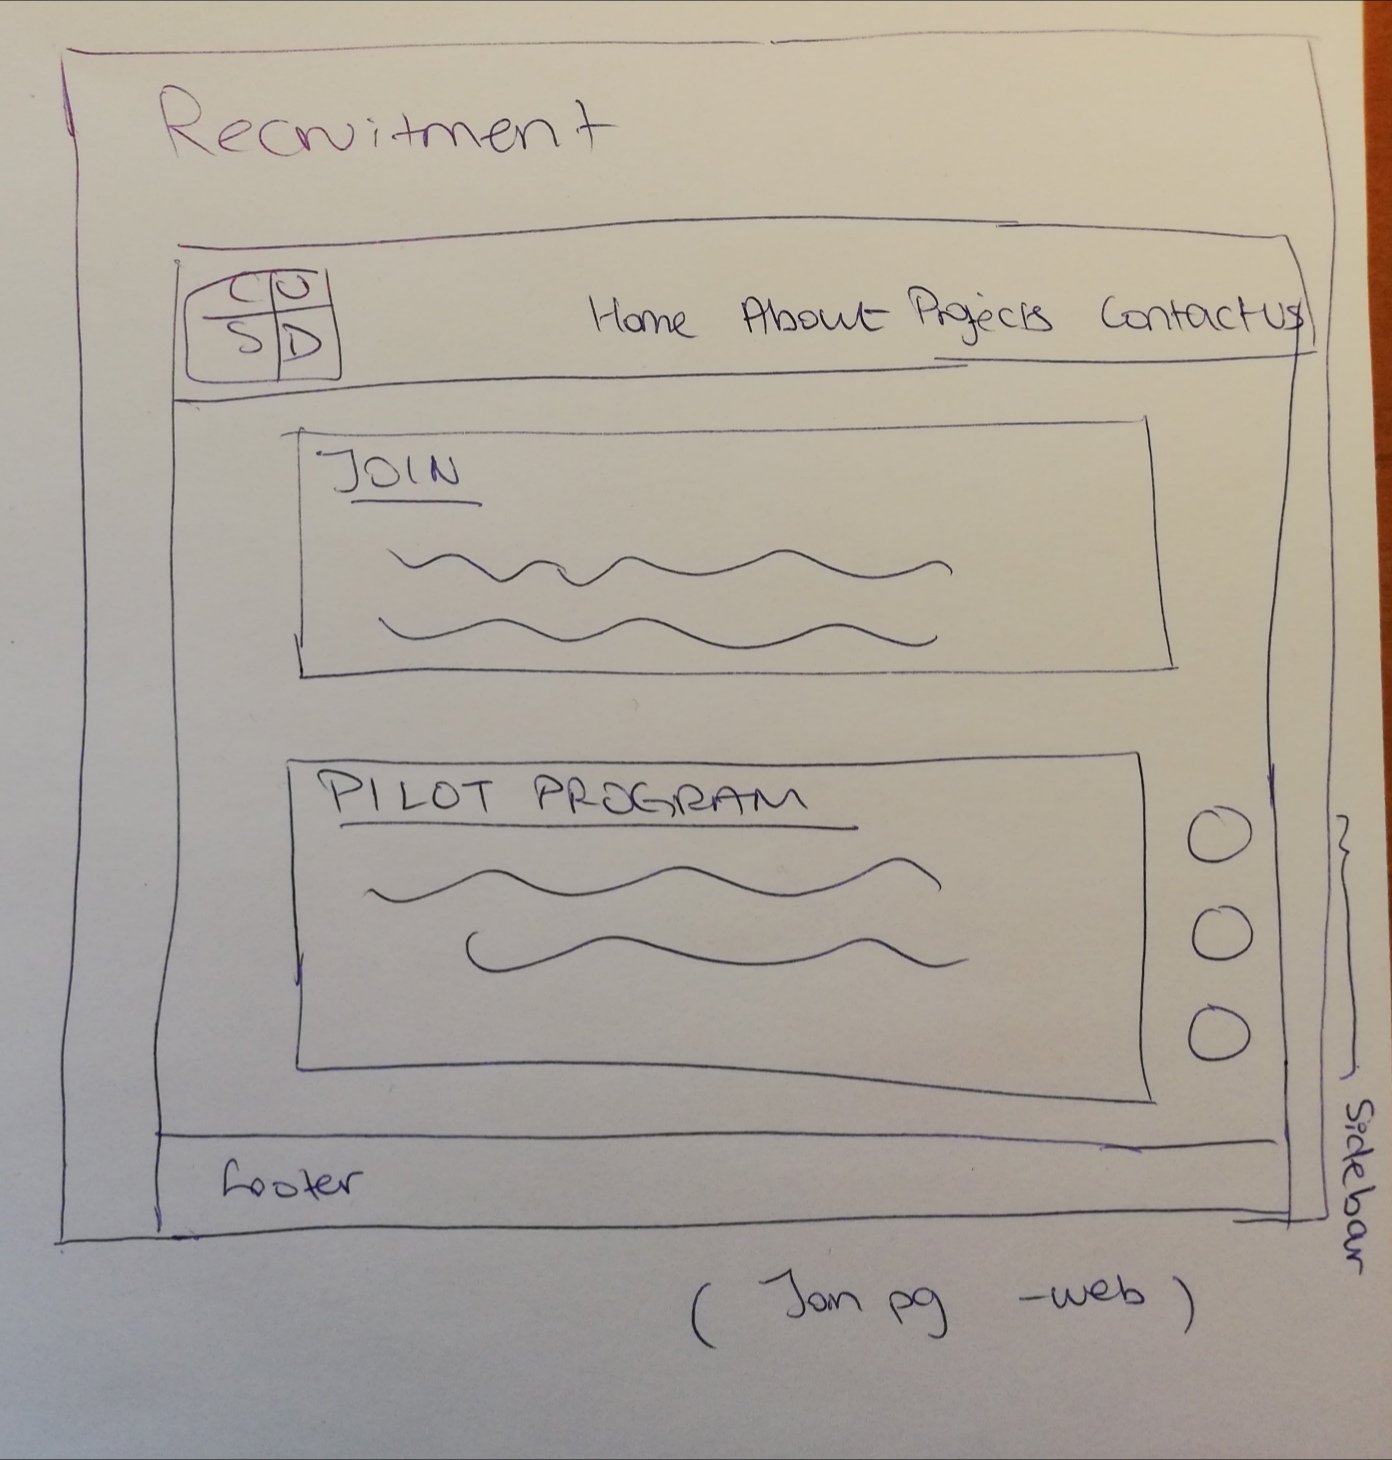 Recruitment
CU
SD
Home About Projects Contact us
JOIN
PILOT PROGRAM
Sidebar
footer
( Join pg - web )